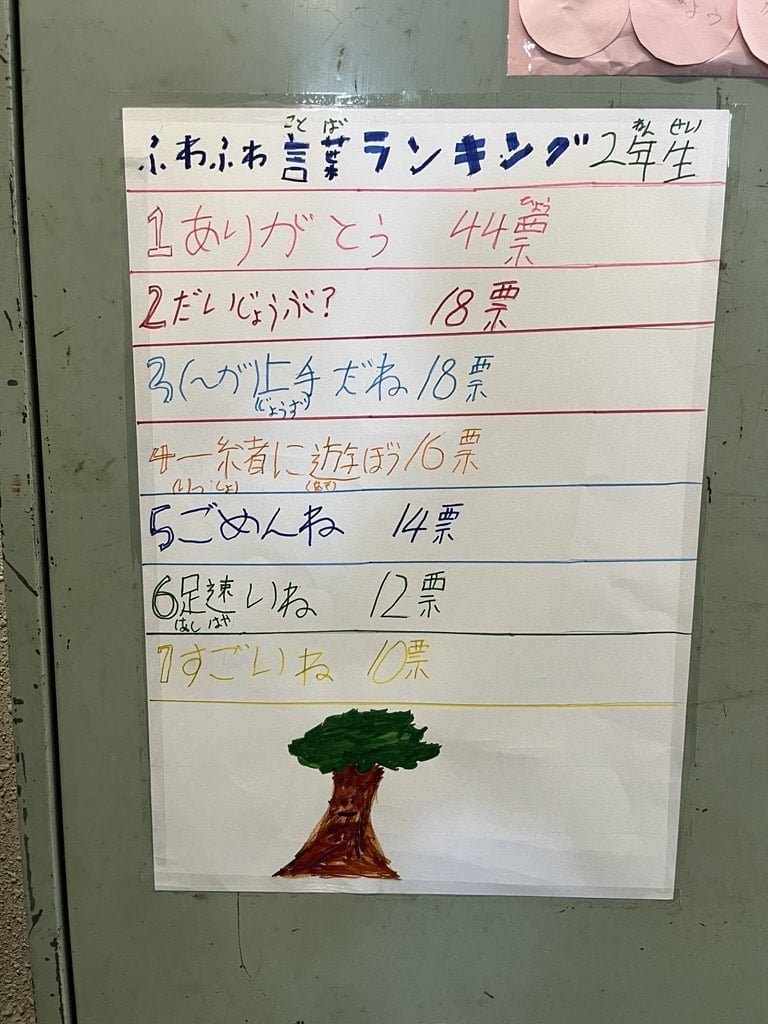 ことば ねんせい
ふわふわ言葉ランキング2年生
ひょう
1ありがとう 44票
2だいじょうぶ? 18票
3(〜が)上手だね 18票
(じょうず)
4一緒に遊ぼう 16票
(いっしょ) (あそ)
5ごめんね 14票
6足速いね 12票
あし はや
7すごいね 10票